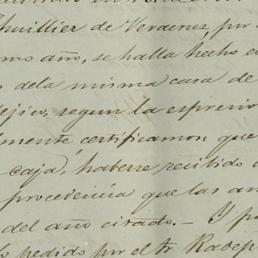 huillier de Veracruz, por
mo año, se halla hecho e
dela misma casa de
éjico, segun la espresio
mente, certificamos que
caja, haberse recibido
procedencia que las an
del año citado.— Y p
pedido por el Sr. Radep